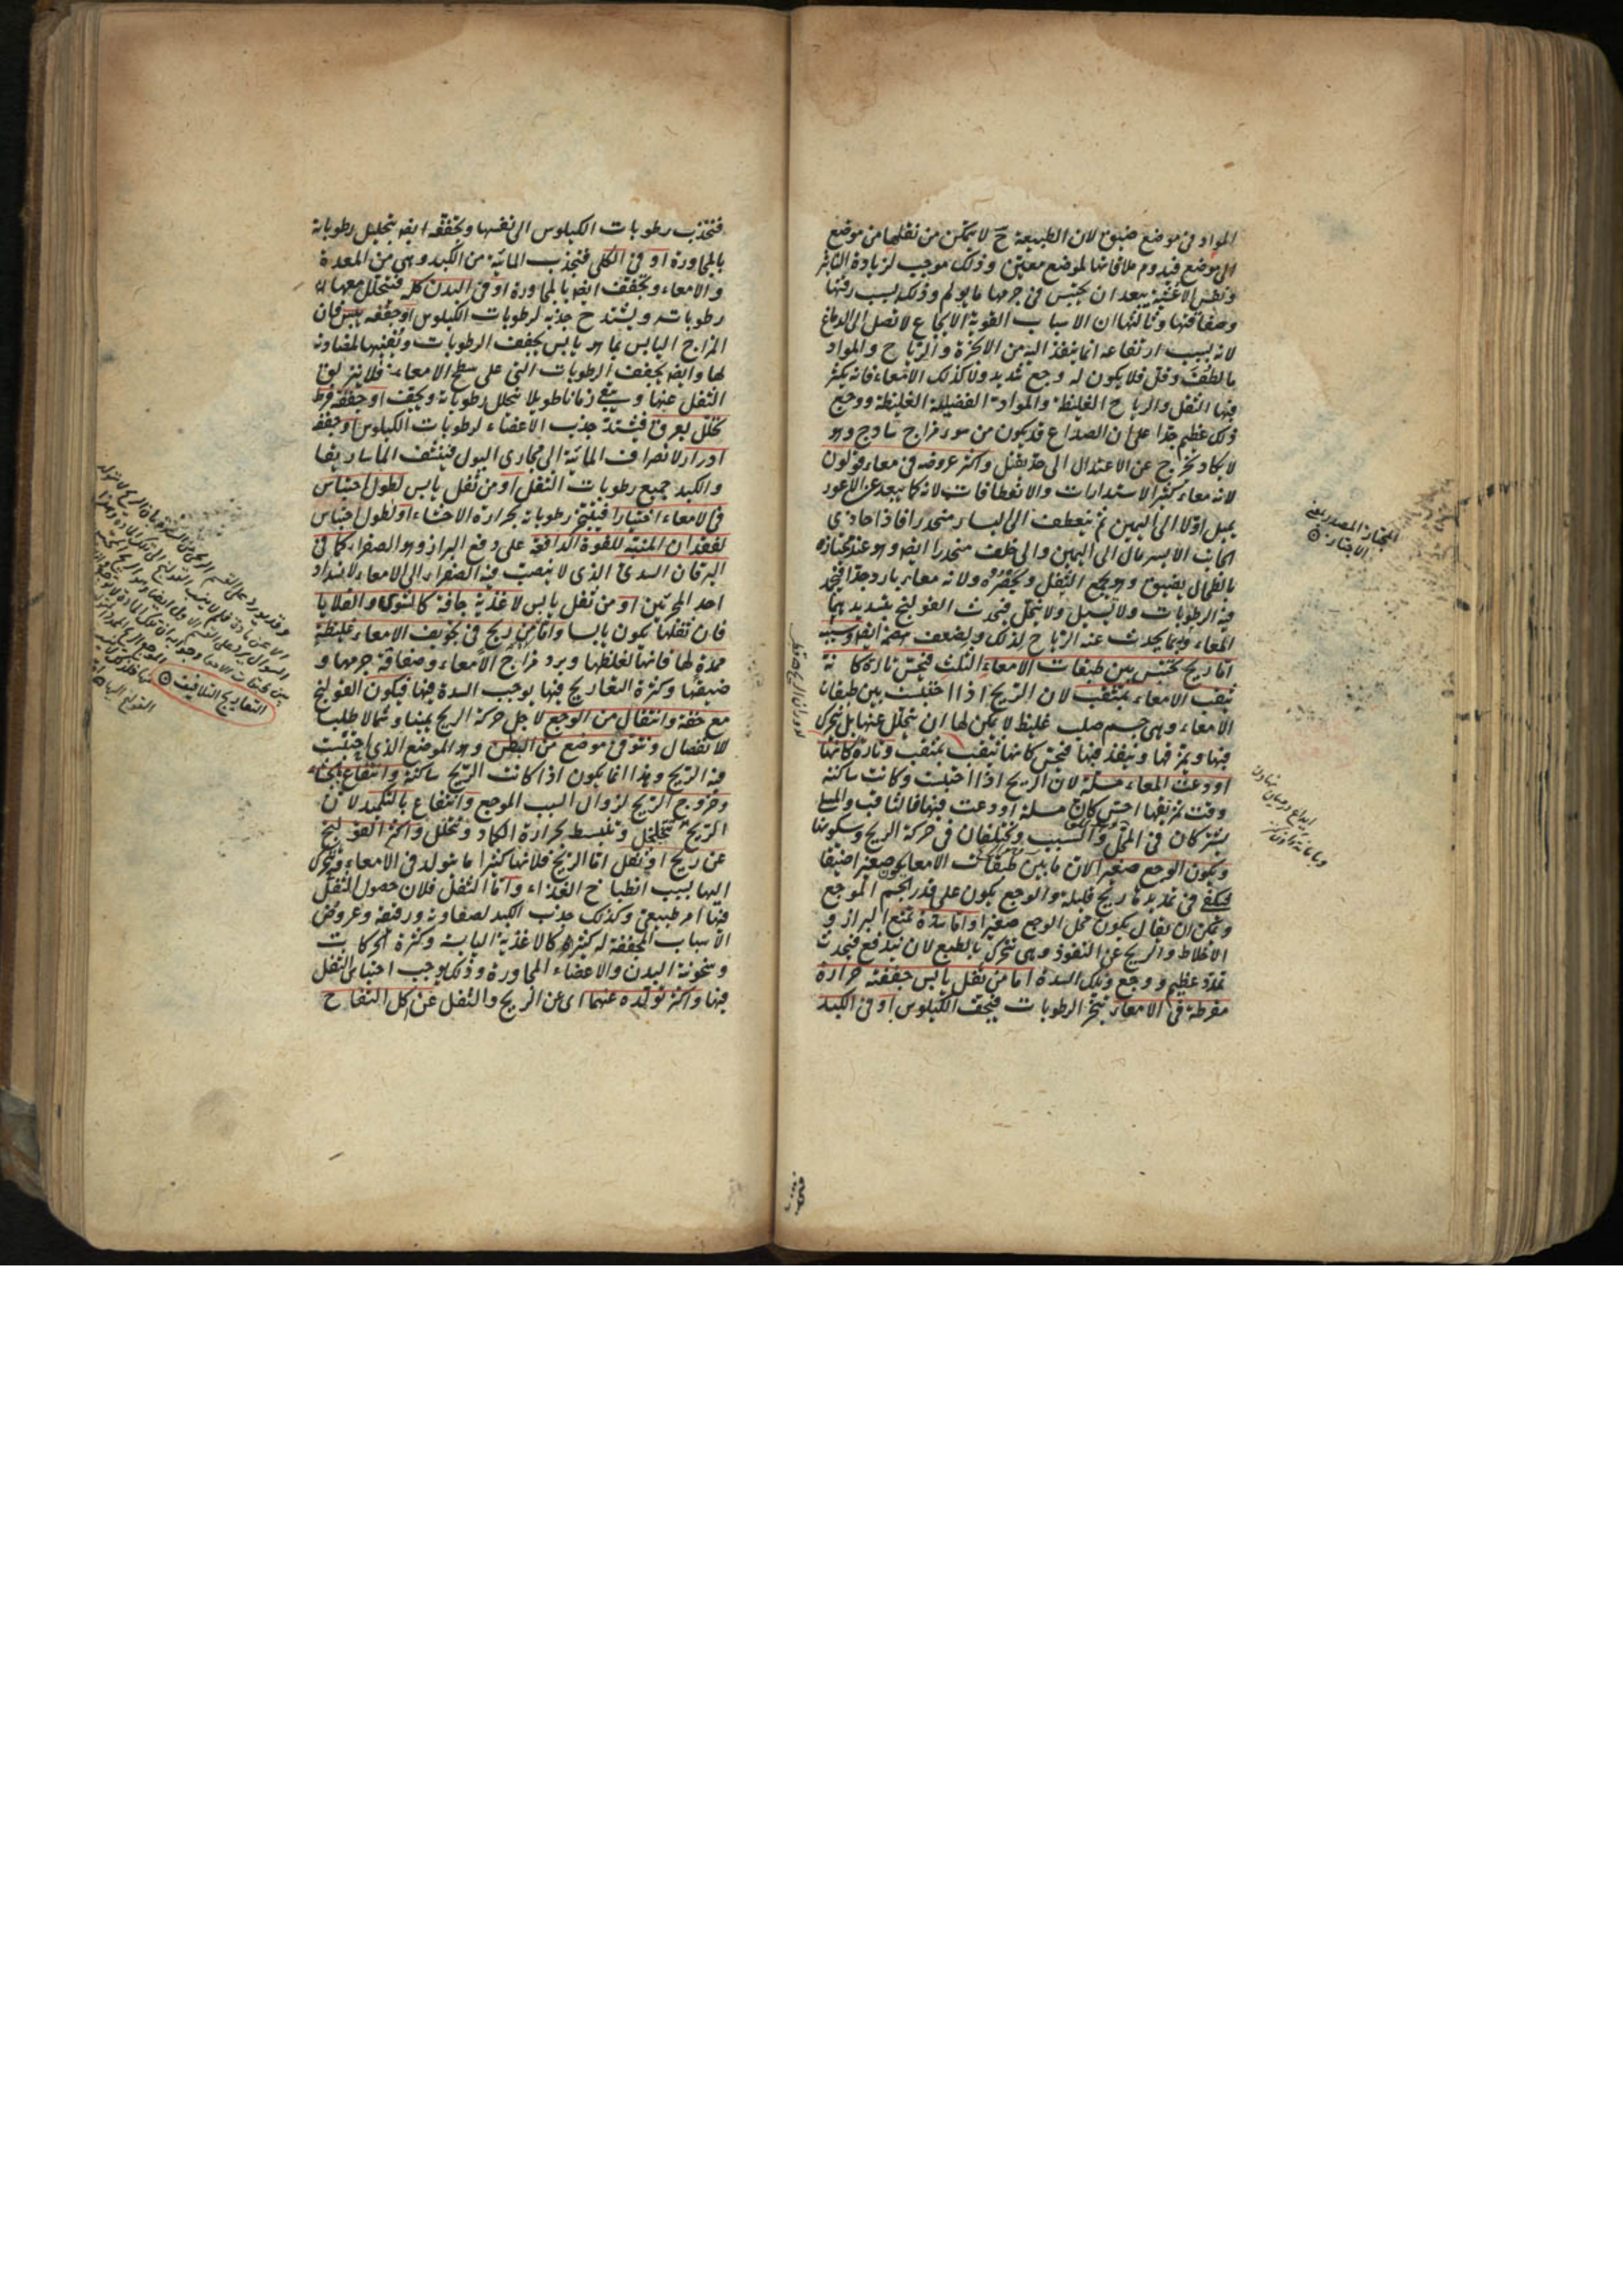 المواد فى موضع ضيق لان الطبيعة ح لا تتمكن من نقلها من موضع
الى موضع فيدوم ملاقاتها لموضع معين وذلك موجب لزيادة التاثير
الاغشية يبعد ان يحتبس فى جرمها ما يولم وذلك لسبب رقتها
وصفاقتها وثالثها ان الاسباب القوية الايجاع لا تصل الى الدماغ
لانه بسبب ارتفاعه انما ينفذ اليه من الابخرة والرياح والمواد
ما لطف وقل فلا يكون له وجع شديد ولا كذلك الامعاء فانه يكثر
فيها الثفل والرياح الغليظة والمواد الفضلية الغليظة ووجع
ذلك عظيم جدا على ان الصداع قد يكون من سوء مزاج ساذج وهو
لا يكاد يخرج عن الاعتدال الى حد يقتل واكثر عروضه فى معاء قولون
لانه معاء كثير الاستدارات والانعطافات لانه كما يبعد عن الاعور
يميل اولا الى اليمين ثم ينعطف الى اليسار منحدرا فاذا حاذى
الجانب الايسر مال الى اليمين والى خلف منحدرا ايضا وهو عند مجتازه
بالطحال يضيق ويجمع الثفل ويحصره ولانه معاء بارد جدا فيجمد
فيه الرطوبات ولا تسيل ولا تتحلل فيحدث القولنج بتسديدها
المعاء وربما يحدث عنه الرياح لذلك ولضعف هضمه ايضا وسببه
اما ريح تحتبس بين طبقات الامعاء الثلث فيحس تارة كانه
يثقب الامعاء بمثقب لان الريح اذا احتبست بين طبقات
الامعاء وهى جسم صلب غليظ لا يمكن لها ان يتحلل عنها بل يتحرك
فيها ويمزقها وينفذ فيها فيحس كانها تثقب بمثقب وتارة كانما
اودعت المعاء مسلة لان الريح اذا احتبست وكانت ساكنة
وقت تمزيقها احس كان مسلة اودعت فيها فالثاقب والمسلى
يشتركان فى المحل والسبب ويختلفان فى حركة الريح وسكونها
ويكون الوجع صغيرا لان ما بين طبقات الامعاء يكون صغيرا ضيقا
فيكفى فى تمديده ريح قليلة والوجع يكون على قدر الجسم الموجع
ويمكن ان يقال يكون محل الوجع صغيرا واما سدة تمنع البراز و
الاخلاط والريح عن النفوذ وهى تتحرك بالطبع لان يندفع فيحدث
تمدد عظيم ووجع وتلك السدة اما من ثفل يابس جففته حرارة
مفرطة فى الامعاء تبخر الرطوبات فيجف الكيلوس او فى الكبد
المجتاز المصدر بمعنى
الاجتياز
فتجذب
فتجذب رطوبات الكيلوس الى نفسها وتجففه ايضا بتحليل رطوباته
بالمجاورة او فى الكلى فتجذب المائية من الكبد وهى من المعدة
والامعاء وتجفف ايضا بالمجاورة او فى البدن كله فتتحلل معها
رطوباته ويشتد ح جذبه لرطوبات الكيلوس او جففه يبس فان
المزاج اليابس بما هو يابس يجفف الرطوبات ويفنيها لمضادته
لها وايضا يجفف الرطوبات التى على سطح الامعاء فلا ينزلق
الثفل عنها ويبقى زمانا طويلا تتحلل رطوباته ويجف او جففه فرط
تحلل بعرق فيشتد جذب الاعضاء لرطوبات الكيلوس او جففه
ادرار لانصراف المائية الى مجارى البول فينشف الماساريقا
والكبد جميع رطوبات الثفل او من ثفل يابس لطول احتباس
فى الامعاء اختيارا فيتبخر رطوباته بحرارة الاحشاء او لطول احتباس
لفقدان المنبه للقوة الدافعة على دفع البراز وهو الصفراء كما فى
اليرقان السدى الذى لا ينصب فيه الصفراء الى الامعاء لانسداد
احد المجريين او من ثفل يابس لاغذية جافة كالشوى والقلايا
فان ثفلها يكون يابسا واما من ريح فى تجويف الامعاء غليظة
ممدة لها فانها لغلظها وبرد مزاج الامعاء وصفاقة جرمها و
ضيقها وكثرة التعاريج فيها يوجب السدة فيها فيكون القولنج
مع خفة وانتقال من الوجع لاجل حركة الريح يمينا وشمالا طلبا
للانفصال ونتو فى موضع من البطن وهو الموضع الذى احتبست
فيه الريح وهذا انما يكون اذا كانت الريح ساكنة وانتفاع بالجشاء
وخروج الريح لزوال السبب الموجع وانتفاع بالتكميد لان
الريح تتخلخل وتنبسط بحرارة الكماد وتتحلل واكثر القولنج
عن ريح او ثفل اما الريح فلانها كثيرا ما تتولد فى الامعاء وتتحرك
اليها بسبب انطباخ الغذاء واما الثفل فلان حصول الثفل
فيها امر طبيعى وكذلك جذب الكبد لصفاوته ورقيقه وعروض
الاسباب المجففة له كثيرة كالاغذية اليابسة وكثرة الحركات
وسخونة البدن والاعضاء المجاورة وذلك يوجب احتباس الثفل
فيها واكثر تولده عنهما اى عن الريح والثفل عن اكل التفاح
التعاريج التلافيف